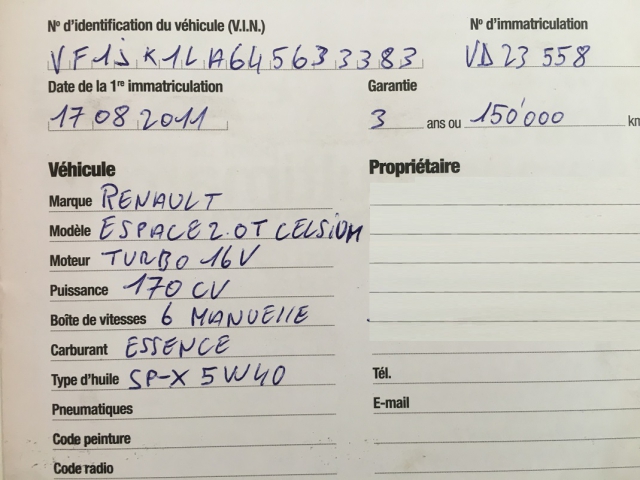 N° d'identification du véhicule (V.I.N.)
N° d'immatriculation
VF1JK1LA645633383
VD 23 558
Date de la 1re immatriculation
Garantie
17 08 2011
3 ans ou 150'000 km
Véhicule
Propriétaire
Marque RENAULT
Modèle ESPACE 2.0T CELSIUM
Moteur TURBO 16V
Puissance 170 CV
Boîte de vitesses 6 MANUEllE
Carburant ESSENCE
Type d'huile SP-X 5W40
Tél.
Pneumatiques
E-mail
Code peinture
Code radio